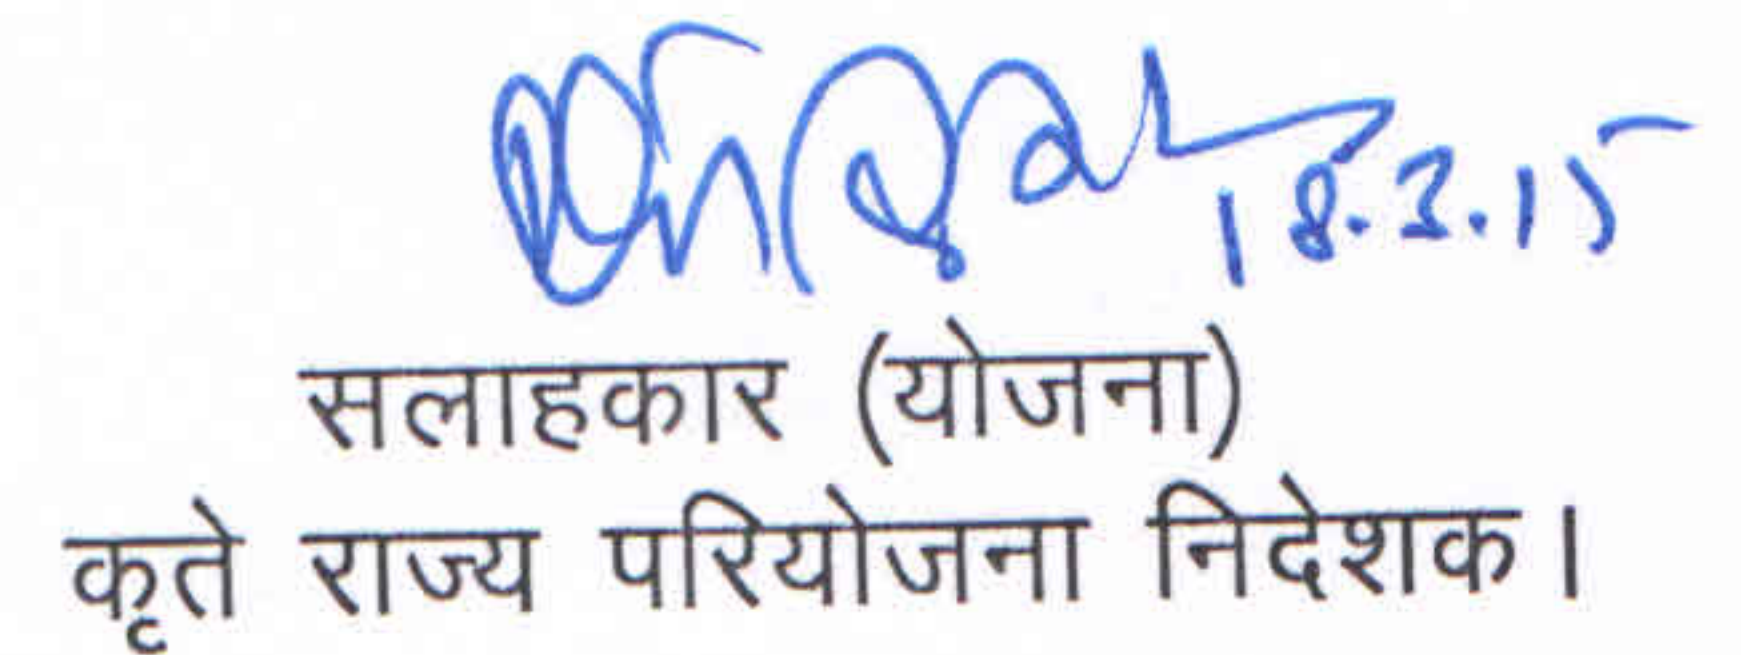 18.3.15
सलाहकार (योजना)
कृते राज्य परियोजना निदेशक।